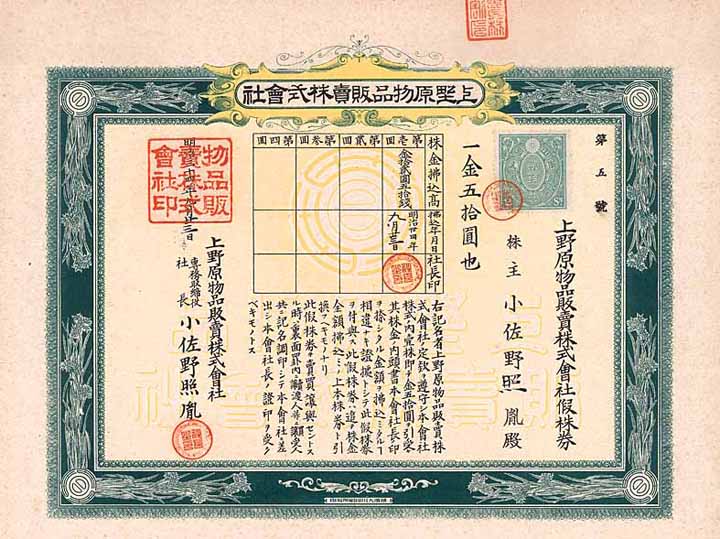 上埜原物品販賣株式會社
第五號
上野原物品販賣株式會社假株券
株主 小佐野照胤殿
一金五拾圓也
株金拂込高
拂込年月日
社長印
第壹回
第貳回
第参回
第四回
金拾貳圓五拾錢
明治廿四年
九月三日
右記名者上野原物品販賣株
式會社ノ定款ヲ遵守シ本會社
株式ノ内壹株即チ金五拾圓ヲ引受
其株金ノ内頭書本會社長印
ヲ捺シタル金額ヲ拂込ミタルニ
相違ナキ證據トシテ此假株券
ヲ付與ス此假株券ハ追テ株金
金額拂込ミノ上本株券ト引
換フベキモノナリ
此假株券ヲ賣買讓與セントス
ル時ハ裏面罫内ニ讓渡人等讓受人
共ニ記名調印シテ本會社ヘ差
出シ本會社長ノ證印ヲ受ク
ベキモノトス
上野原物品販賣株式會社
專務取締役
社長 小佐野照胤
物品販
賣株式
會社印